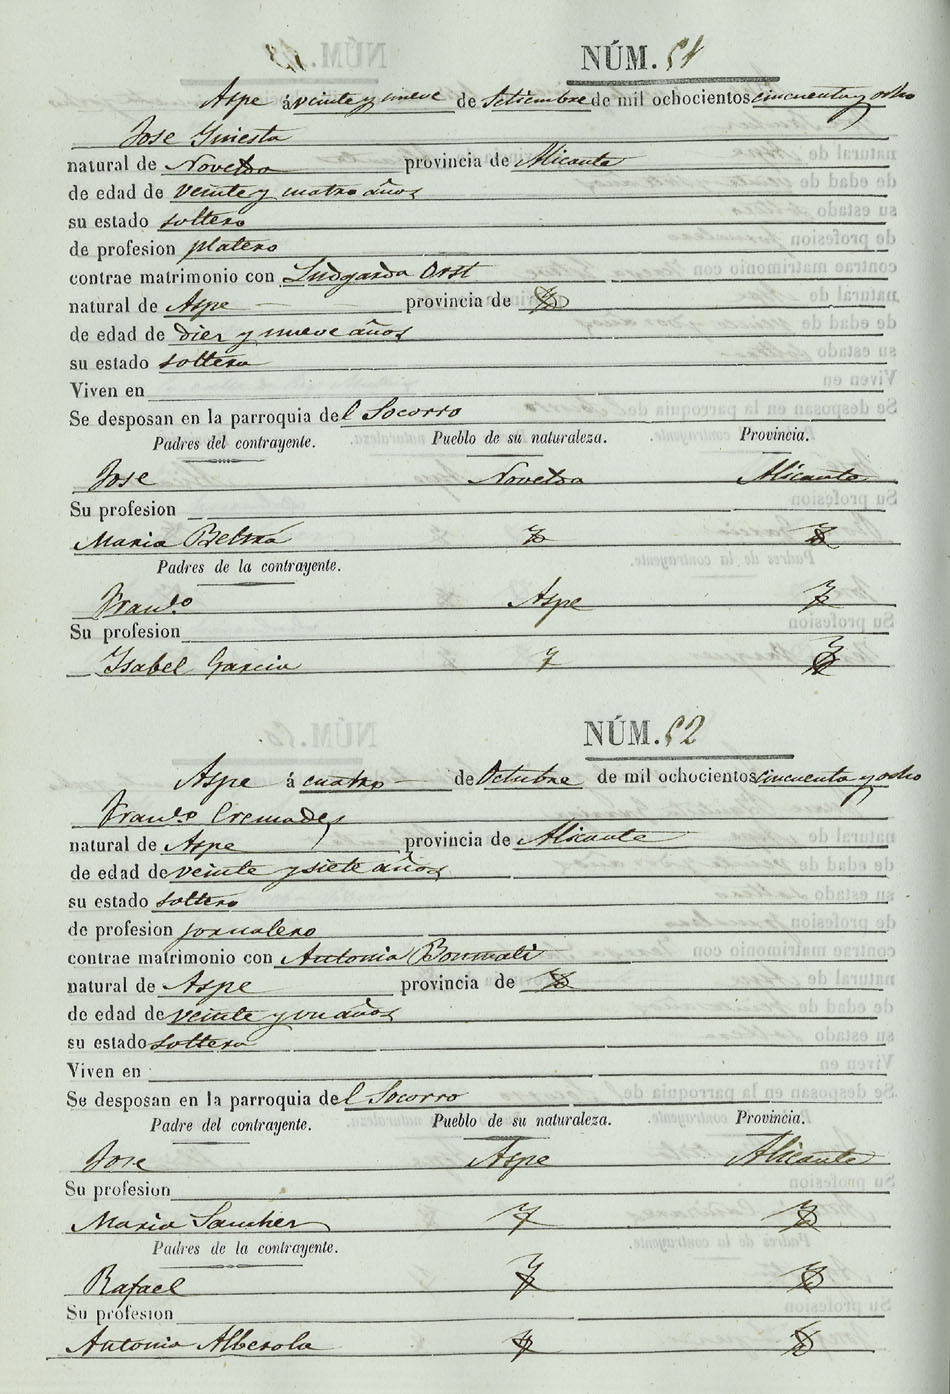 NÚM. 51
Aspe á veinte y nueve de Setiembre de mil ochocientos cincuenta y ocho
Jose Giniesta
natural de Novelda provincia de Alicante
de edad de veinte y cuatro años
su estado soltero
de profesion platero
contrae matrimonio con Ludgarda Orst
natural de Aspe provincia de
de edad de diez y nueve años
su estado soltera
Viven en
Se desposan en la parroquia del Socorro
Padres del contrayente. Pueblo de su naturaleza. Provincia.
Jose Novelda Alicante
Su profesion
Maria Beltrá
Padres de la contrayente.
Franco Aspe
Su profesion
Ysabel Garcia
NÚM. 52
Aspe á cuatro de Octubre de mil ochocientos cincuenta y ocho
Franco Cremades
natural de Aspe provincia de Alicante
de edad de veinte y siete años
su estado soltero
de profesion jornalero
contrae matrimonio con Antonia Bonmati
natural de Aspe provincia de
de edad de veinte y un años
su estado soltera
Viven en
Se desposan en la parroquia del Socorro
Padre del contrayente. Pueblo de su naturaleza. Provincia.
Jose Aspe Alicante
Su profesion
Maria Sanchez
Padres de la contrayente.
Rafael
Su profesion
Antonia Alberola